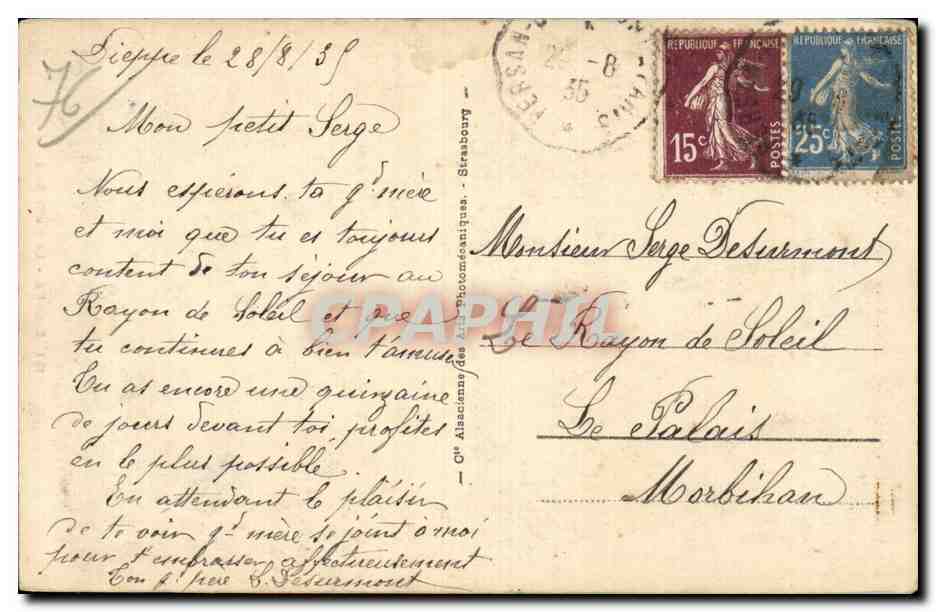 76
Dieppe le 28/8/35
Mon petit Serge
Nous espérons, ta gd mère
et moi que tu es toujours
content de ton séjour au
Rayon de Soleil et que
tu continues à bien t'amuser
Tu as encore une quinzaine
de jours devant toi profites
en le plus possible.
En attendant le plaisir
de te voir gd mère se joint à moi
pour t'embrasser affectueusement
Ton gd père Desurmont
Cie Alsacienne des Arts Photomécaniques. - Strasbourg
-8
35
RÉPUBLIQUE FRANÇAISE
15c
POSTES
RÉPUBLIQUE FRANÇAISE
25c
POSTES
Monsieur Serge Desurmont
Le Rayon de Soleil
Le Palais
Morbihan
CPAPHIL